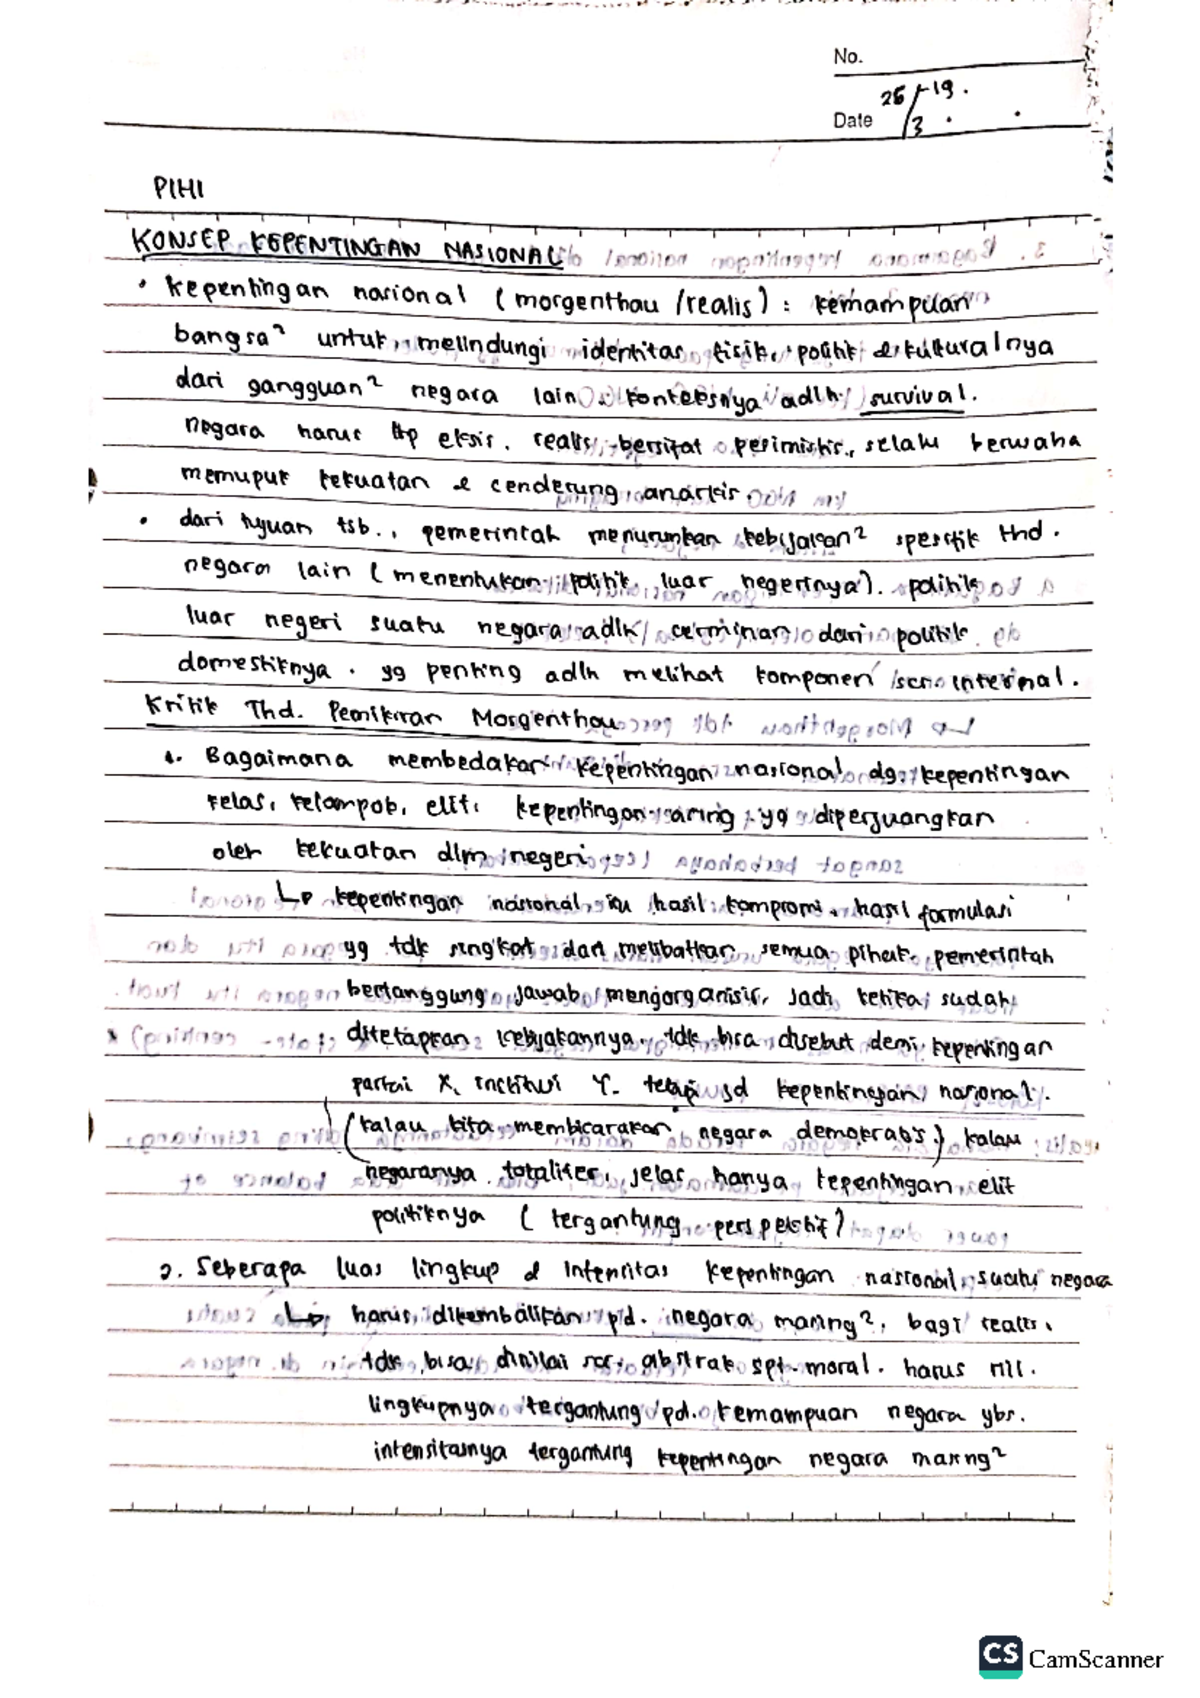 No.
Date 26/3-19.
PIHI
KONSEP KEPENTINGAN NASIONAL
• kepentingan nasional (morgenthau/realis) : kemampuan
bangsa² untuk melindungi identitas fisik, politik & kulturalnya
dari gangguan² negara lain. konteksnya adlh survival.
negara harus ttp eksis. realis bersifat pesimistis, selalu berusaha
memupuk kekuatan & cenderung anarkis.
• dari tujuan tsb., pemerintah menurunkan kebijakan² spesifik thd.
negara lain (menentukan politik luar negerinya). politik
luar negeri suatu negara adlh cerminan dari politik
domestiknya. yg penting adlh melihat komponen scr. internal.
Kritik Thd. Pemikiran Morgenthau
1. Bagaimana membedakan kepentingan nasional dg. kepentingan
kelas, kelompok, elit, kepentingan asing yg diperjuangkan
oleh kekuatan dlm negeri
↳ kepentingan nasional itu hasil kompromi, hasil formulasi
yg tdk singkat dan melibatkan semua pihak. pemerintah
bertanggung jawab mengorganisir, jadi ketika sudah
ditetapkan kebijakannya, tdk bisa disebut demi kepentingan
partai X, institusi Y. tetapi sd kepentingan nasional.
(kalau kita membicarakan negara demokrasi) kalau
negaranya totaliter, jelas hanya kepentingan elit
politiknya (tergantung perspektif)
2. Seberapa luas lingkup & intensitas kepentingan nasional suatu negara
↳ harus dikembalikan pd. negara masing², bagi realis,
tdk bisa dinilai scr. abstrak spt. moral. harus riil.
lingkupnya tergantung pd. kemampuan negara ybs.
intensitasnya tergantung kepentingan negara masing²
CS CamScanner